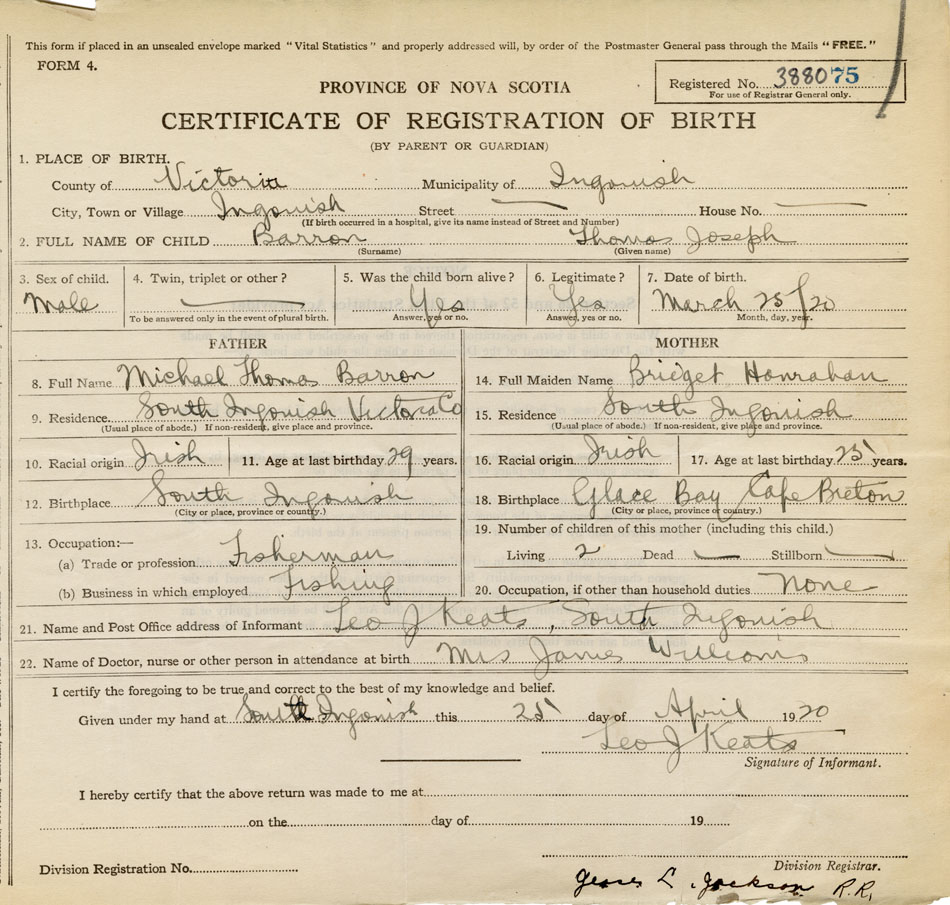 This form if placed in an unsealed envelope marked "Vital Statistics" and properly addressed will, by order of the Postmaster General pass through the Mails "FREE."
FORM 4.
Registered No. 388075
For use of Registrar General only.
PROVINCE OF NOVA SCOTIA
CERTIFICATE OF REGISTRATION OF BIRTH
(BY PARENT OR GUARDIAN)
1. PLACE OF BIRTH.
County of Victoria Municipality of Ingonish
City, Town or Village Ingonish Street House No.
(If birth occurred in a hospital, give its name instead of Street and Number)
2. FULL NAME OF CHILD Barron Thomas Joseph
(Surname) (Given name)
3. Sex of child. 4. Twin, triplet or other? 5. Was the child born alive? 6. Legitimate? 7. Date of birth.
Male Yes Yes March 25/20
To be answered only in the event of plural birth. Answer, yes or no. Answer, yes or no. Month, day, year.
FATHER MOTHER
8. Full Name Michael Thomas Barron
14. Full Maiden Name Bridget Hanrahan
9. Residence. South Ingonish Victoria Co
15. Residence South Ingonish
(Usual place of abode.) If non-resident, give place and province.
(Usual place of abode.) If non-resident, give place and province.
10. Racial origin Irish 11. Age at last birthday 29 years.
16. Racial origin Irish 17. Age at last birthday 25 years.
12. Birthplace South Ingonish
(City or place, province or country.)
18. Birthplace Glace Bay Cape Breton
(City or place, province or country.)
13. Occupation:—
(a) Trade or profession Fisherman
(b) Business in which employed Fishing
19. Number of children of this mother (including this child.)
Living 2 Dead Stillborn
20. Occupation, if other than household duties None
21. Name and Post Office address of Informant Leo J Keats, South Ingonish
22. Name of Doctor, nurse or other person in attendance at birth Mrs James Williams
I certify the foregoing to be true and correct to the best of my knowledge and belief.
Given under my hand at South Ingonish this 25 day of April 1920
Leo J Keats
Signature of Informant.
I hereby certify that the above return was made to me at
on the day of 19
Division Registration No.
Division Registrar.
L. Jackson R.R.